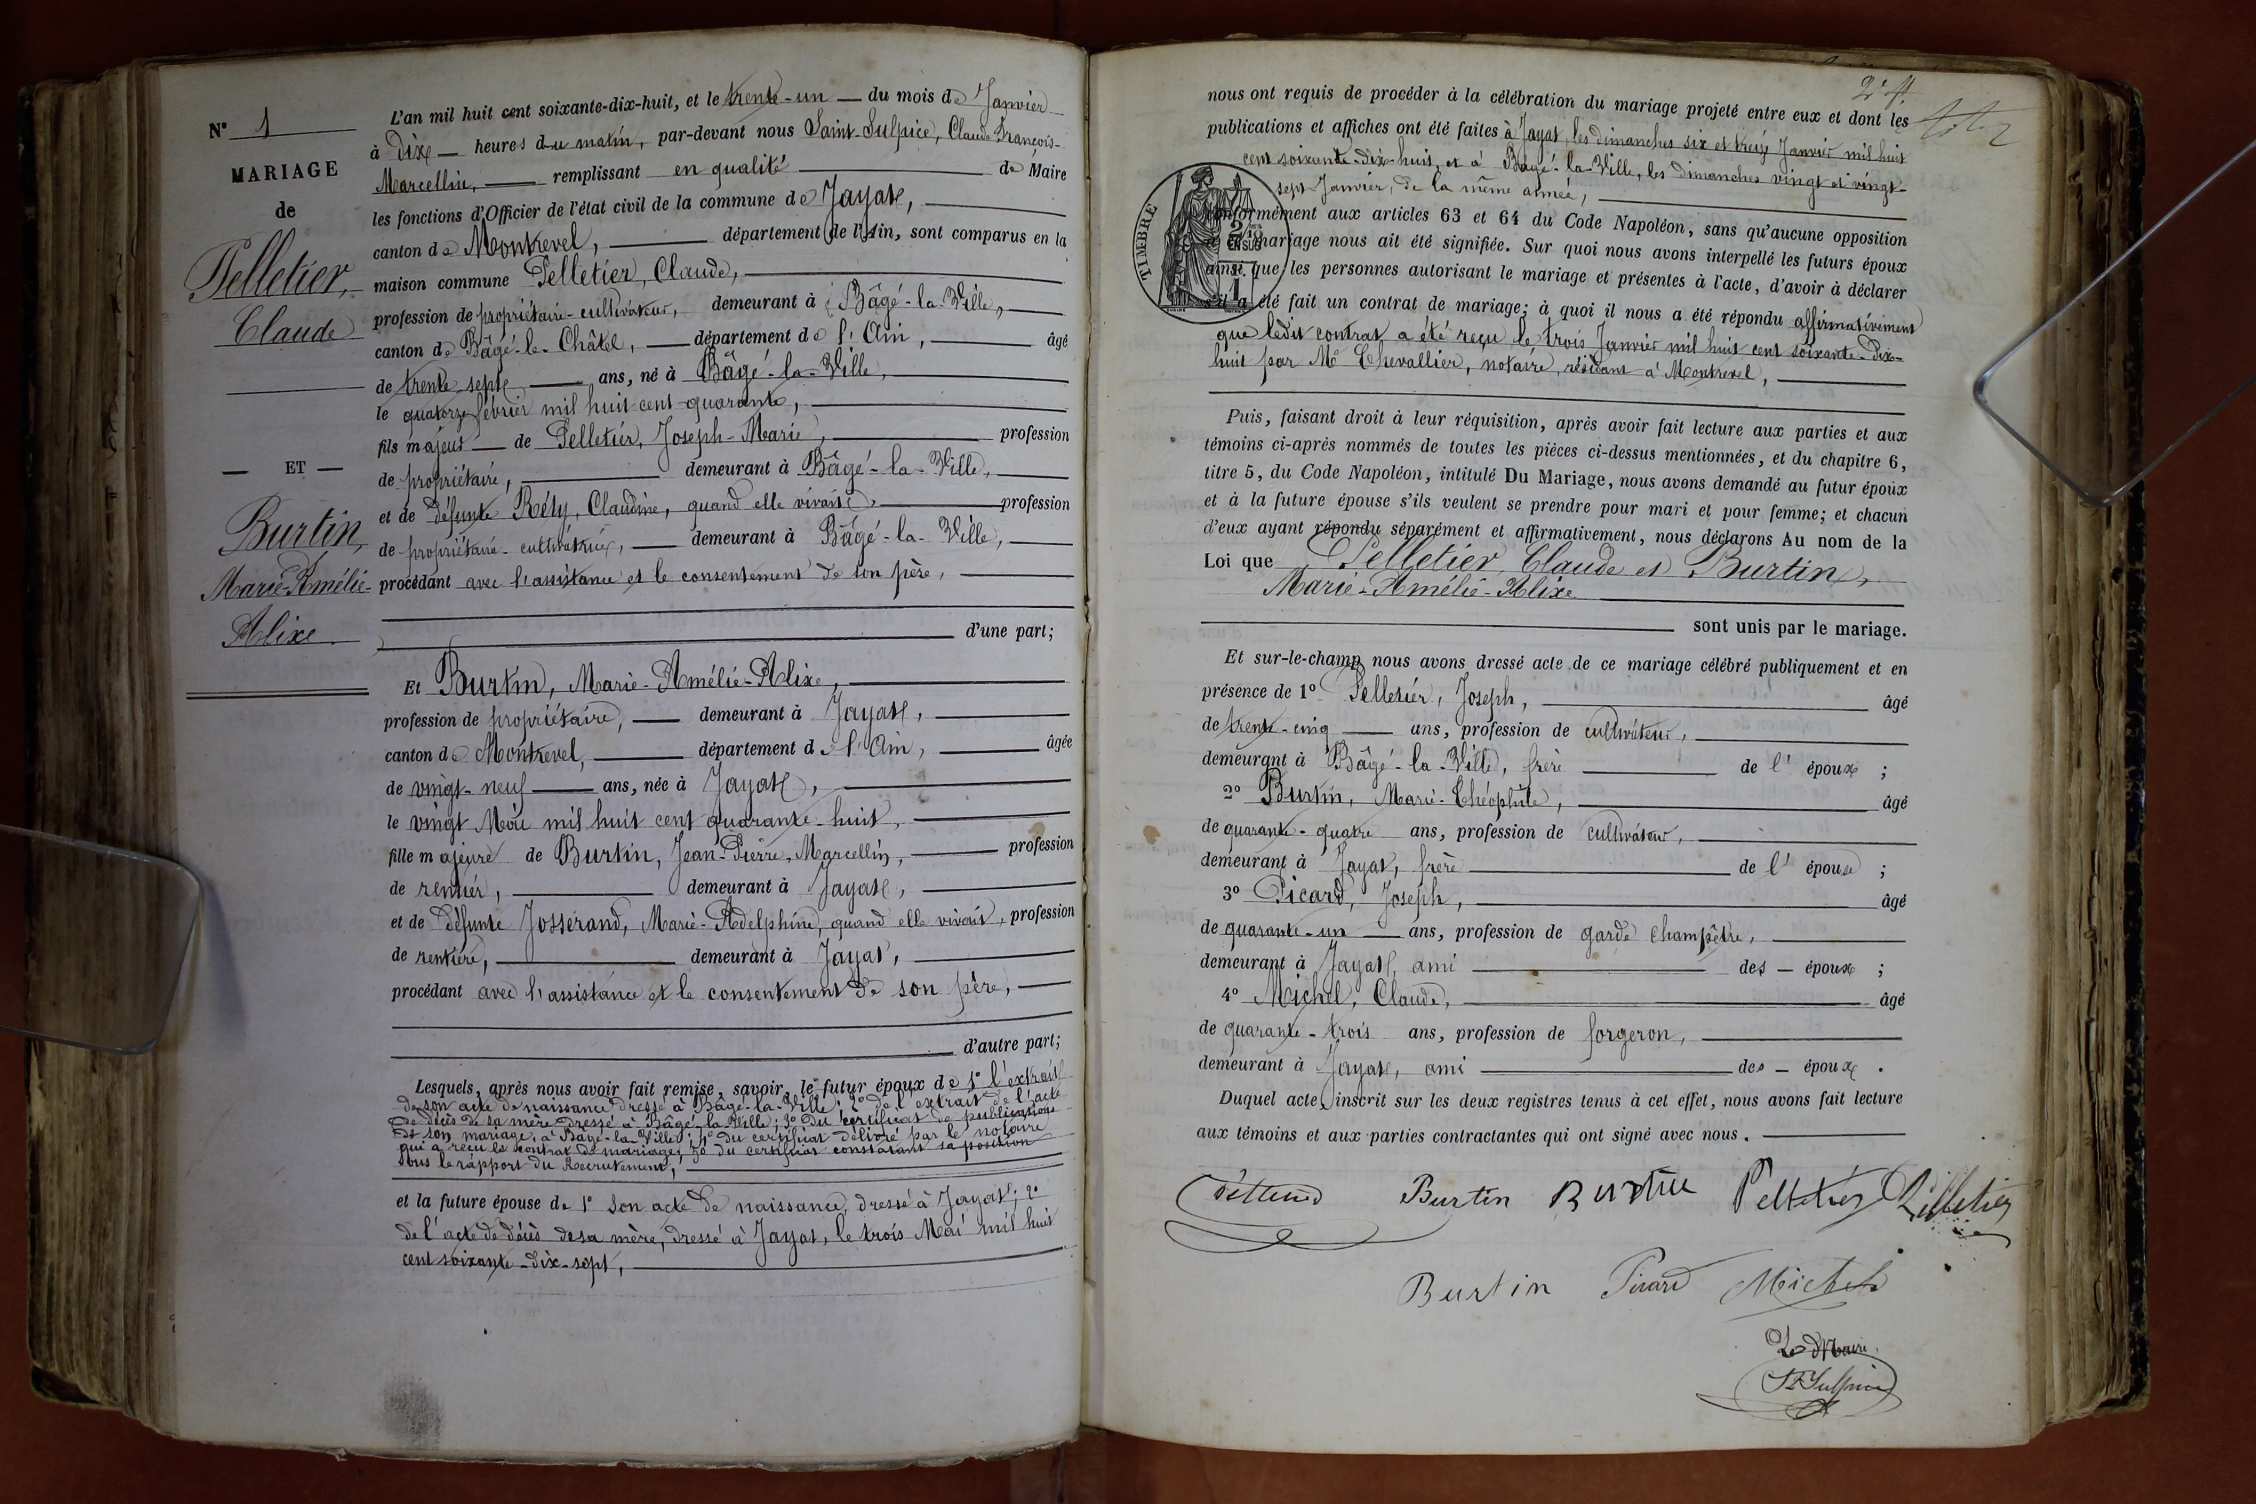 N° 1
MARIAGE
de
Pelletier,
Claude
— ET —
Burtin,
Marie-Amélie-
Alixe
L'an mil huit cent soixante-dix-huit, et le trente-un — du mois de Janvier
à dix — heures du matin, par-devant nous Saint-Sulpice, Claude François-
Marcellin, — remplissant en qualité — de Maire
les fonctions d'Officier de l'état civil de la commune de Jayat,
canton de Montrevel, — département de l'Ain, sont comparus en la
maison commune Pelletier, Claude,
profession de propriétaire-cultivateur, demeurant à Bâgé-la-Ville,
canton de Bâgé-le-Châtel, — département de l'Ain, — âgé
de trente sept — ans, né à Bâgé-la-Ville,
le quatorze février mil huit cent quarante,
fils majeur — de Pelletier, Joseph-Marie, — profession
de propriétaire, — demeurant à Bâgé-la-Ville,
et de défunte Réty, Claudine, quand elle vivait, — profession
de propriétaire-cultivatrice, — demeurant à Bâgé-la-Ville,
procédant avec l'assistance et le consentement de son père,
d'une part;
Et Burtin, Marie-Amélie-Alixe,
profession de propriétaire, — demeurant à Jayat,
canton de Montrevel, — département de l'Ain, — âgée
de vingt-neuf — ans, née à Jayat,
le vingt Mai mil huit cent quarante-huit,
fille majeure de Burtin, Jean-Pierre-Marcellin, — profession
de rentier, — demeurant à Jayat,
et de défunte Josserand, Marie-Adelphine, quand elle vivait, profession
de rentière, — demeurant à Jayat,
procédant avec l'assistance et le consentement de son père,
d'autre part;
Lesquels, après nous avoir fait remise, savoir, le futur époux de 1° l'extrait
de son acte de naissance dressé à Bâgé-la-Ville; 2° de l'extrait de l'acte
de décès de sa mère dressé à Bâgé-la-Ville; 3° du certificat de publications
de son mariage, à Bâgé-la-Ville; 4° du certificat délivré par le notaire
qui a reçu le contrat de mariage; 5° du certificat constatant sa position
sous le rapport du Recrutement,
et la future épouse de 1° son acte de naissance, dressé à Jayat; 2°
de l'acte de décès de sa mère, dressé à Jayat, le trois Mai mil huit
cent soixante-dix-sept,
nous ont requis de procéder à la célébration du mariage projeté entre eux et dont les
publications et affiches ont été faites à Jayat, les dimanches six et treize Janvier mil huit
cent soixante-dix-huit, et à Bâgé-la-Ville, les dimanches vingt et vingt-
sept Janvier, de la même année,
TIMBRE
2/10
EN SUS
conformément aux articles 63 et 64 du Code Napoléon, sans qu'aucune opposition
à ce mariage nous ait été signifiée. Sur quoi nous avons interpellé les futurs époux
ainsi que les personnes autorisant le mariage et présentes à l'acte, d'avoir à déclarer
s'il a été fait un contrat de mariage; à quoi il nous a été répondu affirmativement
que ledit contrat a été reçu le trois Janvier mil huit cent soixante-dix-
huit par Me Chevallier, notaire, résidant à Montrevel,
Puis, faisant droit à leur réquisition, après avoir fait lecture aux parties et aux
témoins ci-après nommés de toutes les pièces ci-dessus mentionnées, et du chapitre 6,
titre 5, du Code Napoléon, intitulé Du Mariage, nous avons demandé au futur époux
et à la future épouse s'ils veulent se prendre pour mari et pour femme; et chacun
d'eux ayant répondu séparément et affirmativement, nous déclarons Au nom de la
Loi que Pelletier, Claude et Burtin,
Marie-Amélie-Alixe
sont unis par le mariage.
Et sur-le-champ nous avons dressé acte de ce mariage célébré publiquement et en
présence de 1° Pelletier, Joseph, — âgé
de trente-cinq — ans, profession de cultivateur,
demeurant à Bâgé-la-Ville, frère — de l'époux ;
2° Burtin, Marie-Théophile, — âgé
de quarante-quatre ans, profession de cultivateur,
demeurant à Jayat, frère — de l'épouse ;
3° Picard, Joseph, — âgé
de quarante-un — ans, profession de garde champêtre,
demeurant à Jayat, ami — des — époux ;
4° Michel, Claude, — âgé
de quarante-trois ans, profession de forgeron,
demeurant à Jayat, ami — des — époux .
Duquel acte, inscrit sur les deux registres tenus à cet effet, nous avons fait lecture
aux témoins et aux parties contractantes qui ont signé avec nous.
Burtin Burtin Pelletier Pelletier
Burtin Picard Michel
Le Maire
St Sulpice